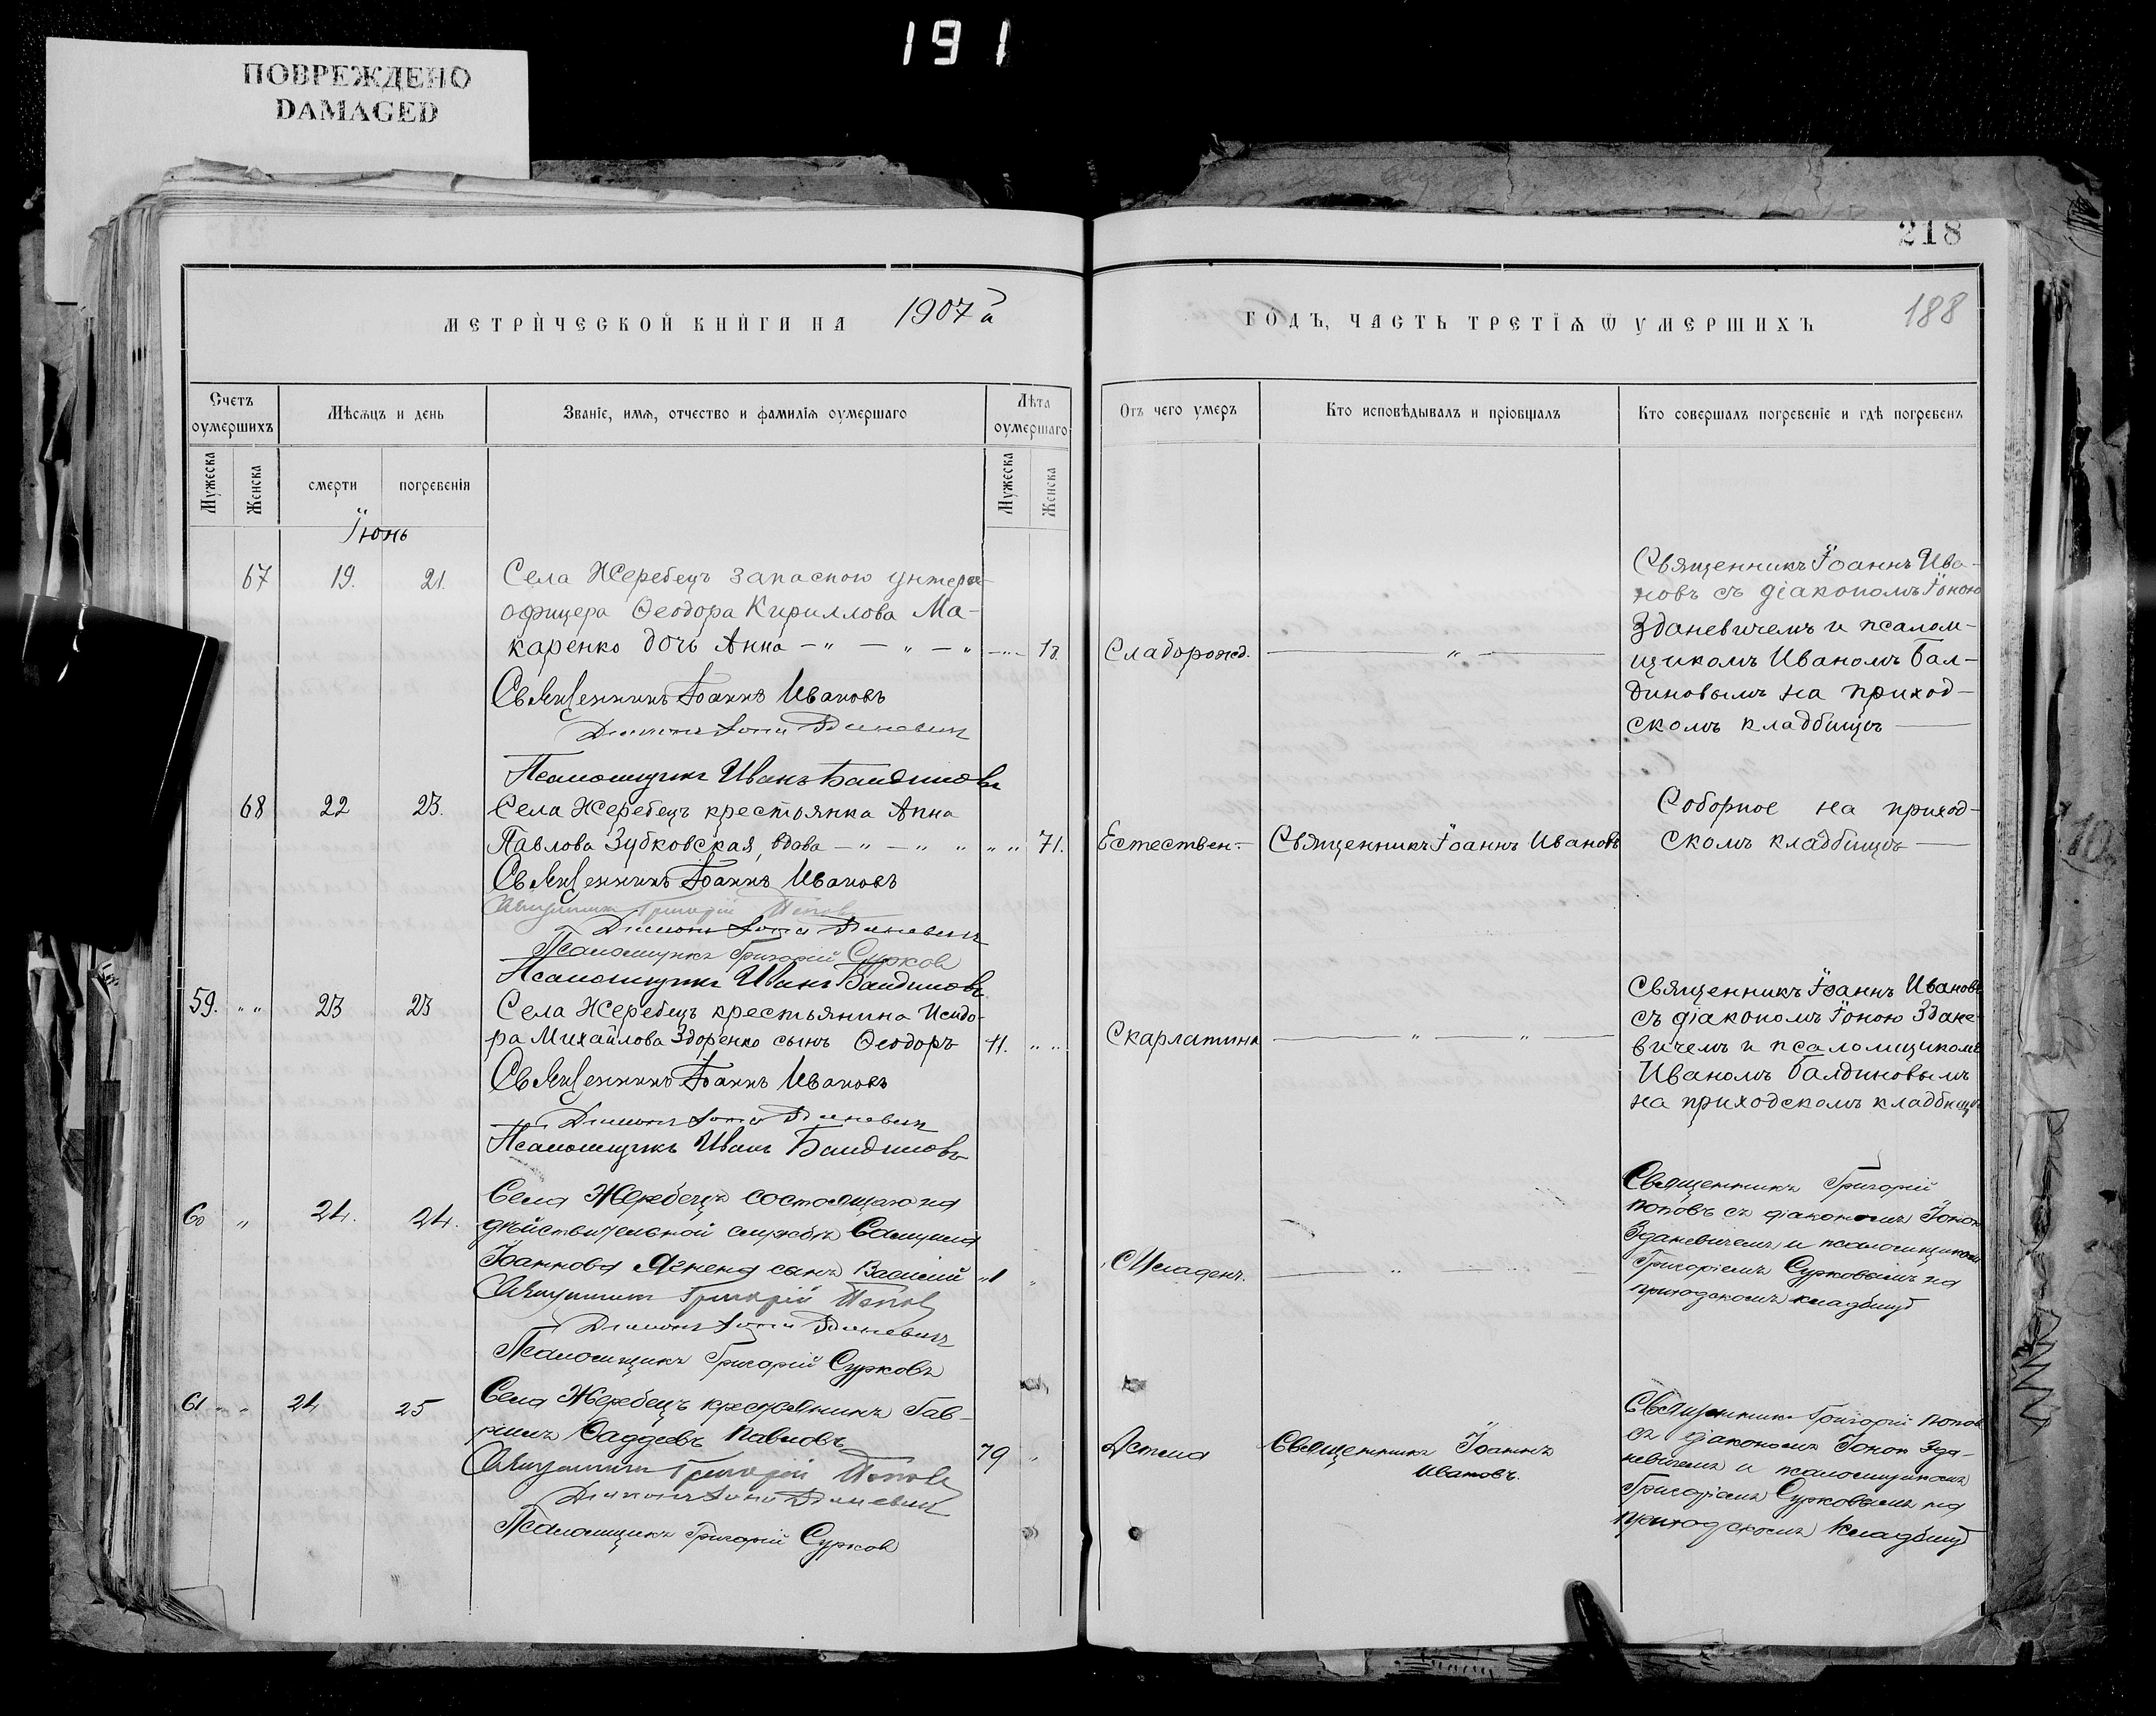 191
ПОВРЕЖДЕНО
DAMAGED
218
МЕТРИЧЕСКОЙ КНИГИ НА 1907й
ГОДЪ, ЧАСТЬ ТРЕТІѦ Ѿ УМЕРШИХЪ
188
Счетъ оумершихъ
Мѣсѧцъ и день
Званіе, имѧ, отчество и фамиліѧ оумершаго
Лѣта оумершаго
Мужеска
Женска
смерти
погребенія
Мужеска
Женска
Отъ чего умеръ
Кто исповѣдывалъ и пріобщалъ
Кто совершалъ погребеніе и гдѣ погребенъ
Іюнь
67 19. 21. Села Жеребецъ запаснаго унтеръ-
офицера Ѳеодора Кириллова Ма-
каренко дочь Анна
Слаборожд.
Священникъ Іоаннъ Ива-
новъ съ діакономъ Іоною
Зданевичемъ и псалом-
щикомъ Иваномъ Бал-
диновымъ на приход-
скомъ кладбищѣ
Священникъ Іоаннъ Ивановъ
Діаконъ Іона Зданевичъ
Псаломщикъ Иванъ Балдиновъ
68 22 23. Села Жеребецъ крестьянка Анна
Павлова Зубковская, вдова 71.
Естествен.
Священникъ Іоаннъ Ивановъ
Соборное на приход-
скомъ кладбищѣ
Священникъ Іоаннъ Ивановъ
Священникъ Григорій Поповъ
Діаконъ Іона Зданевичъ
Псаломщикъ Григорій Сурковъ
Псаломщикъ Иванъ Балдиновъ
59. " " 23 23 Села Жеребецъ крестьянина Исидо-
ра Михайлова Здоренко сынъ Ѳеодоръ 11. " "
Скарлатина
Священникъ Іоаннъ Ивановъ
съ діакономъ Іоною Здане-
вичемъ и псаломщикомъ
Иваномъ Балдиновымъ
на приходскомъ кладбищѣ
Священникъ Іоаннъ Ивановъ
Діаконъ Іона Зданевичъ
Псаломщикъ Иванъ Балдиновъ
60 " 24. 24. Села Жеребецъ состоящаго на
дѣйствительной службѣ Самуила
Іоаннова Ягнена сынъ Василій 1 "
Младен.
Священникъ Григорій
Поповъ съ діакономъ Іоною
Зданевичемъ и псаломщикомъ
Григоріемъ Сурковымъ на
приходскомъ кладбищѣ
Священникъ Григорій Поповъ
Діаконъ Іона Зданевичъ
Псаломщикъ Григорій Сурковъ
61 24 25 Села Жеребецъ крестьянинъ Гав-
риилъ Ѳаддеевъ Павловъ 79
Астма
Священникъ Іоаннъ
Ивановъ.
Священникъ Григорій Поповъ
съ діакономъ Іоною Зда-
невичемъ и псаломщикомъ
Григоріемъ Сурковымъ на
приходскомъ кладбищѣ
Священникъ Григорій Поповъ
Діаконъ Іона Зданевичъ
Псаломщикъ Григорій Сурковъ